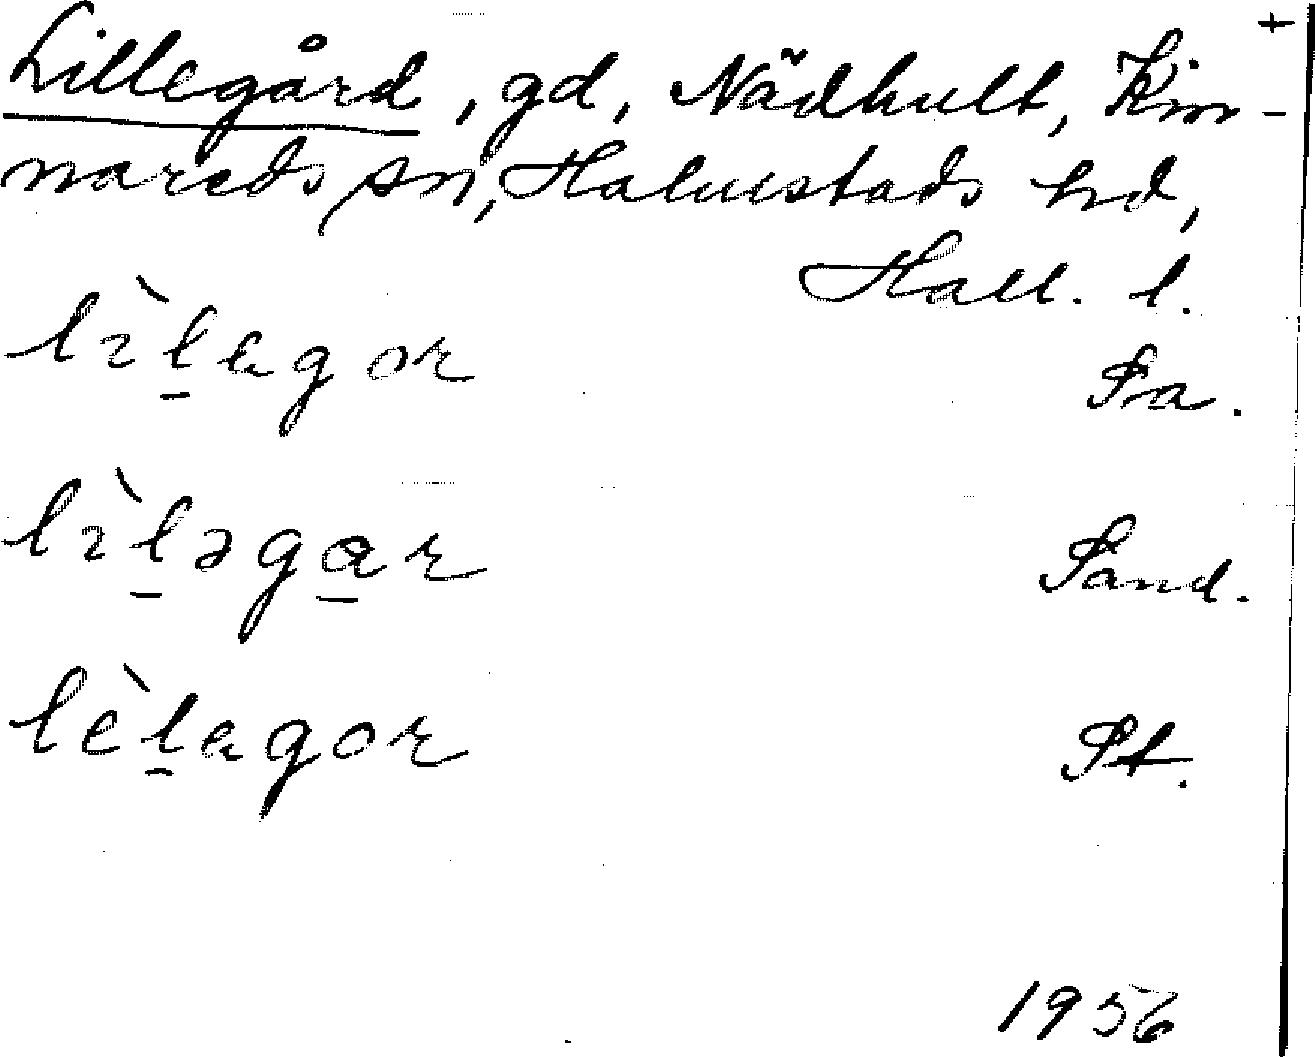 +
Lillegård, gd, Nädhult, Kin-
nareds sn, Halmstads hd,
Hall. l.
lìl̠agor Pa.
lìl̠əga̠r Sand.
lèl̠agor Pt.
1956